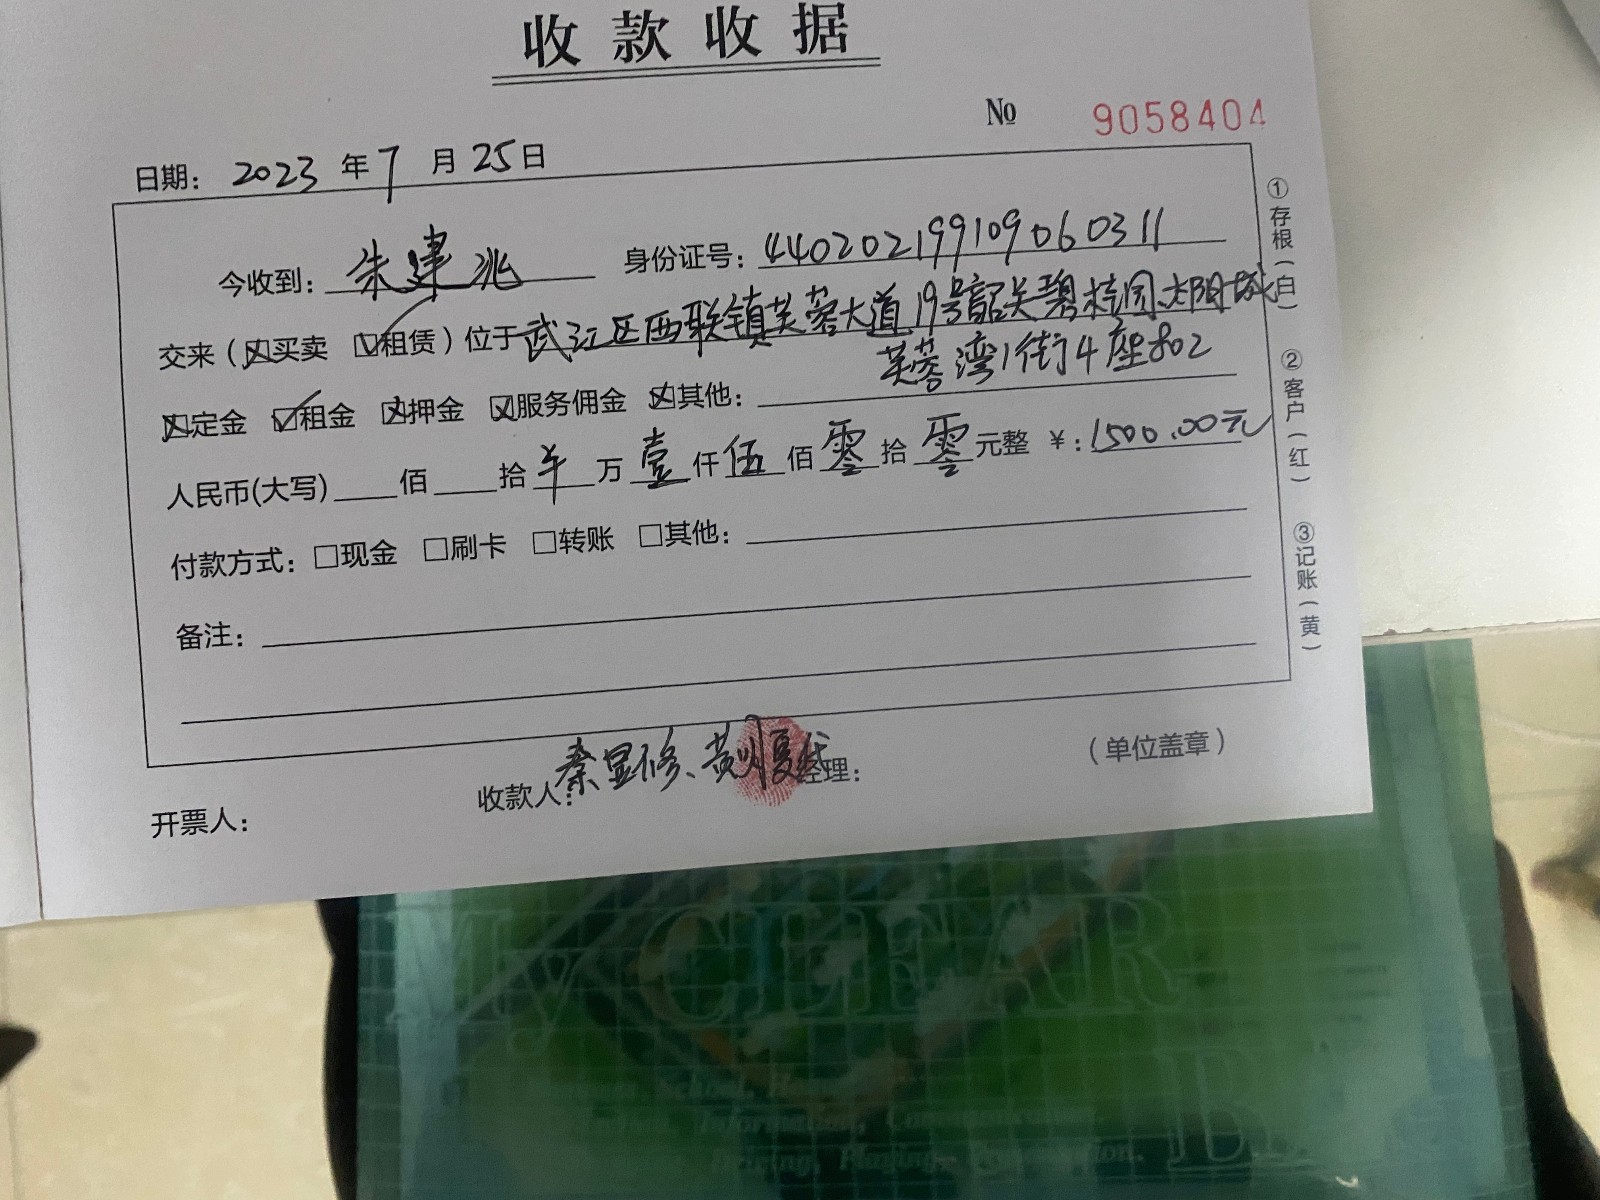 收款收据
№ 9058404
日期: 2023 年 7 月 25 日
今收到: 朱建兆 身份证号: 440202199109060311
交来(☒买卖 ☑租赁)位于武江区西联镇芙蓉大道19号韶关碧桂园.太阳城
芙蓉湾1街4座802
☒定金 ☑租金 ☒押金 ☒服务佣金 ☒其他:
人民币(大写) 佰 拾 ¥ 万 壹 仟 伍 佰 零 拾 零 元整 ¥: 1500.00元
付款方式: □现金 □刷卡 □转账 □其他:
备注:
开票人: 收款人: 秦显修、黄 夏代 经理: (单位盖章)
①存根(白) ②客户(红) ③记账(黄)
My CLEAR